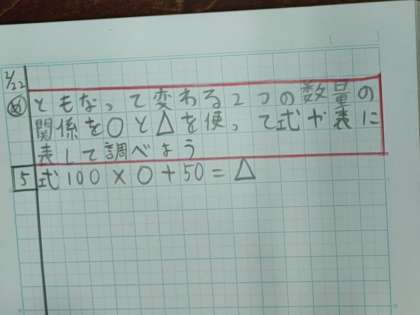 2/22
め ともなって変わる2つの数量の
関係を○と△を使って式や表に
表して調べよう
5 式100×○+50=△